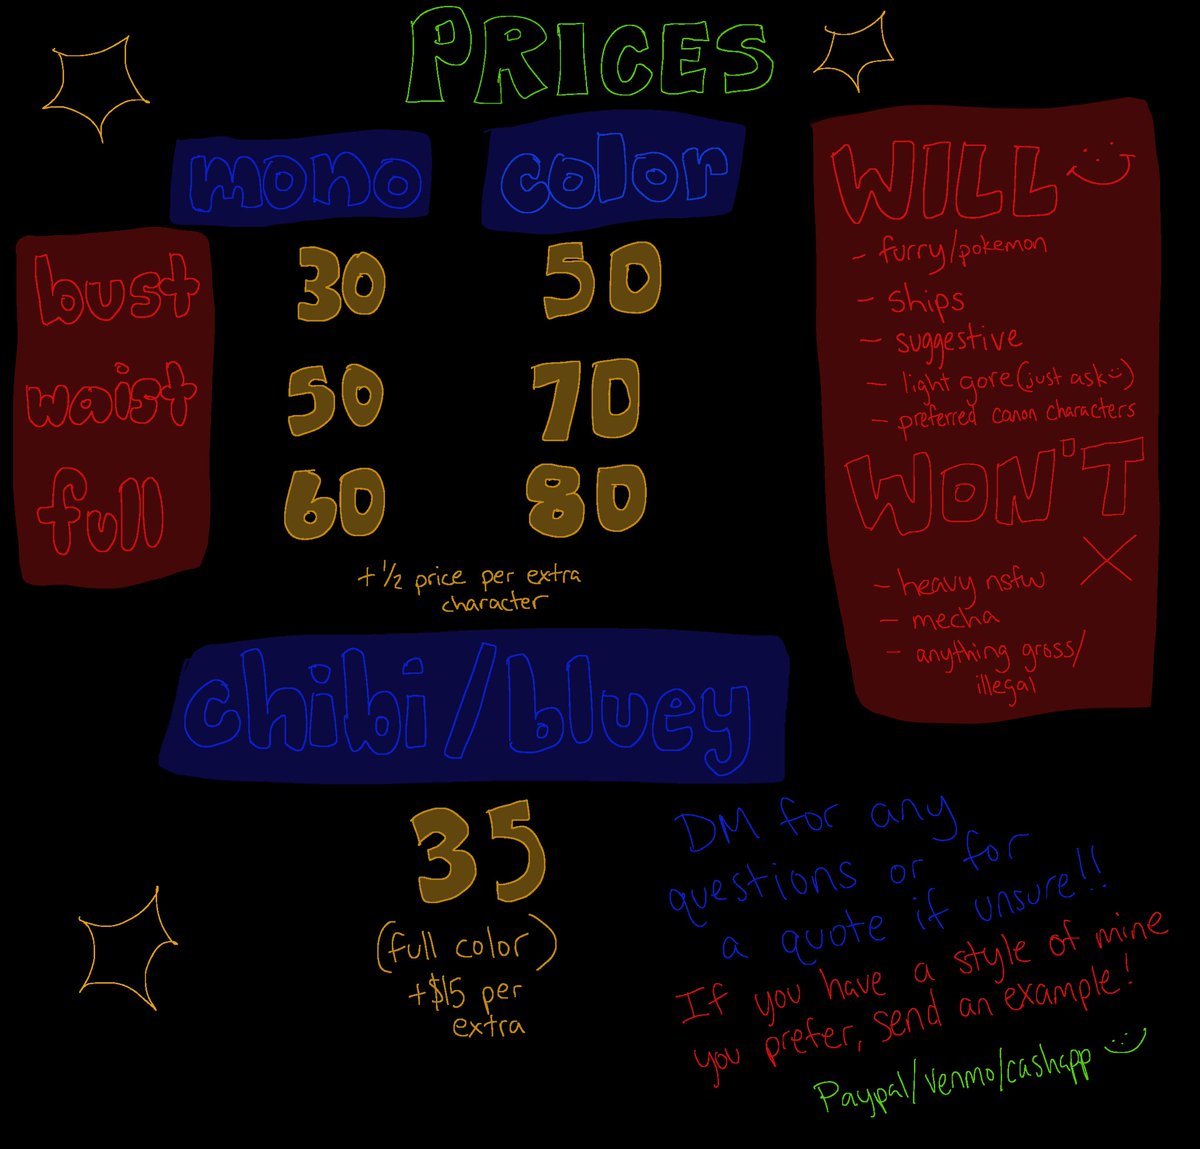 PRICES
mono color
bust 30 50
waist 50 70
full 60 80
+ 1/2 price per extra
character
chibi/bluey
35
(full color)
+$15 per
extra
WILL
- furry/pokemon
- ships
- suggestive
- light gore (just ask:))
- preferred canon characters
WON'T
- heavy nsfw
- mecha
- anything gross/
illegal
DM for any
questions or for
a quote if unsure!!
If you have a style of mine
you prefer, send an example!
Paypal/venmo/cashapp